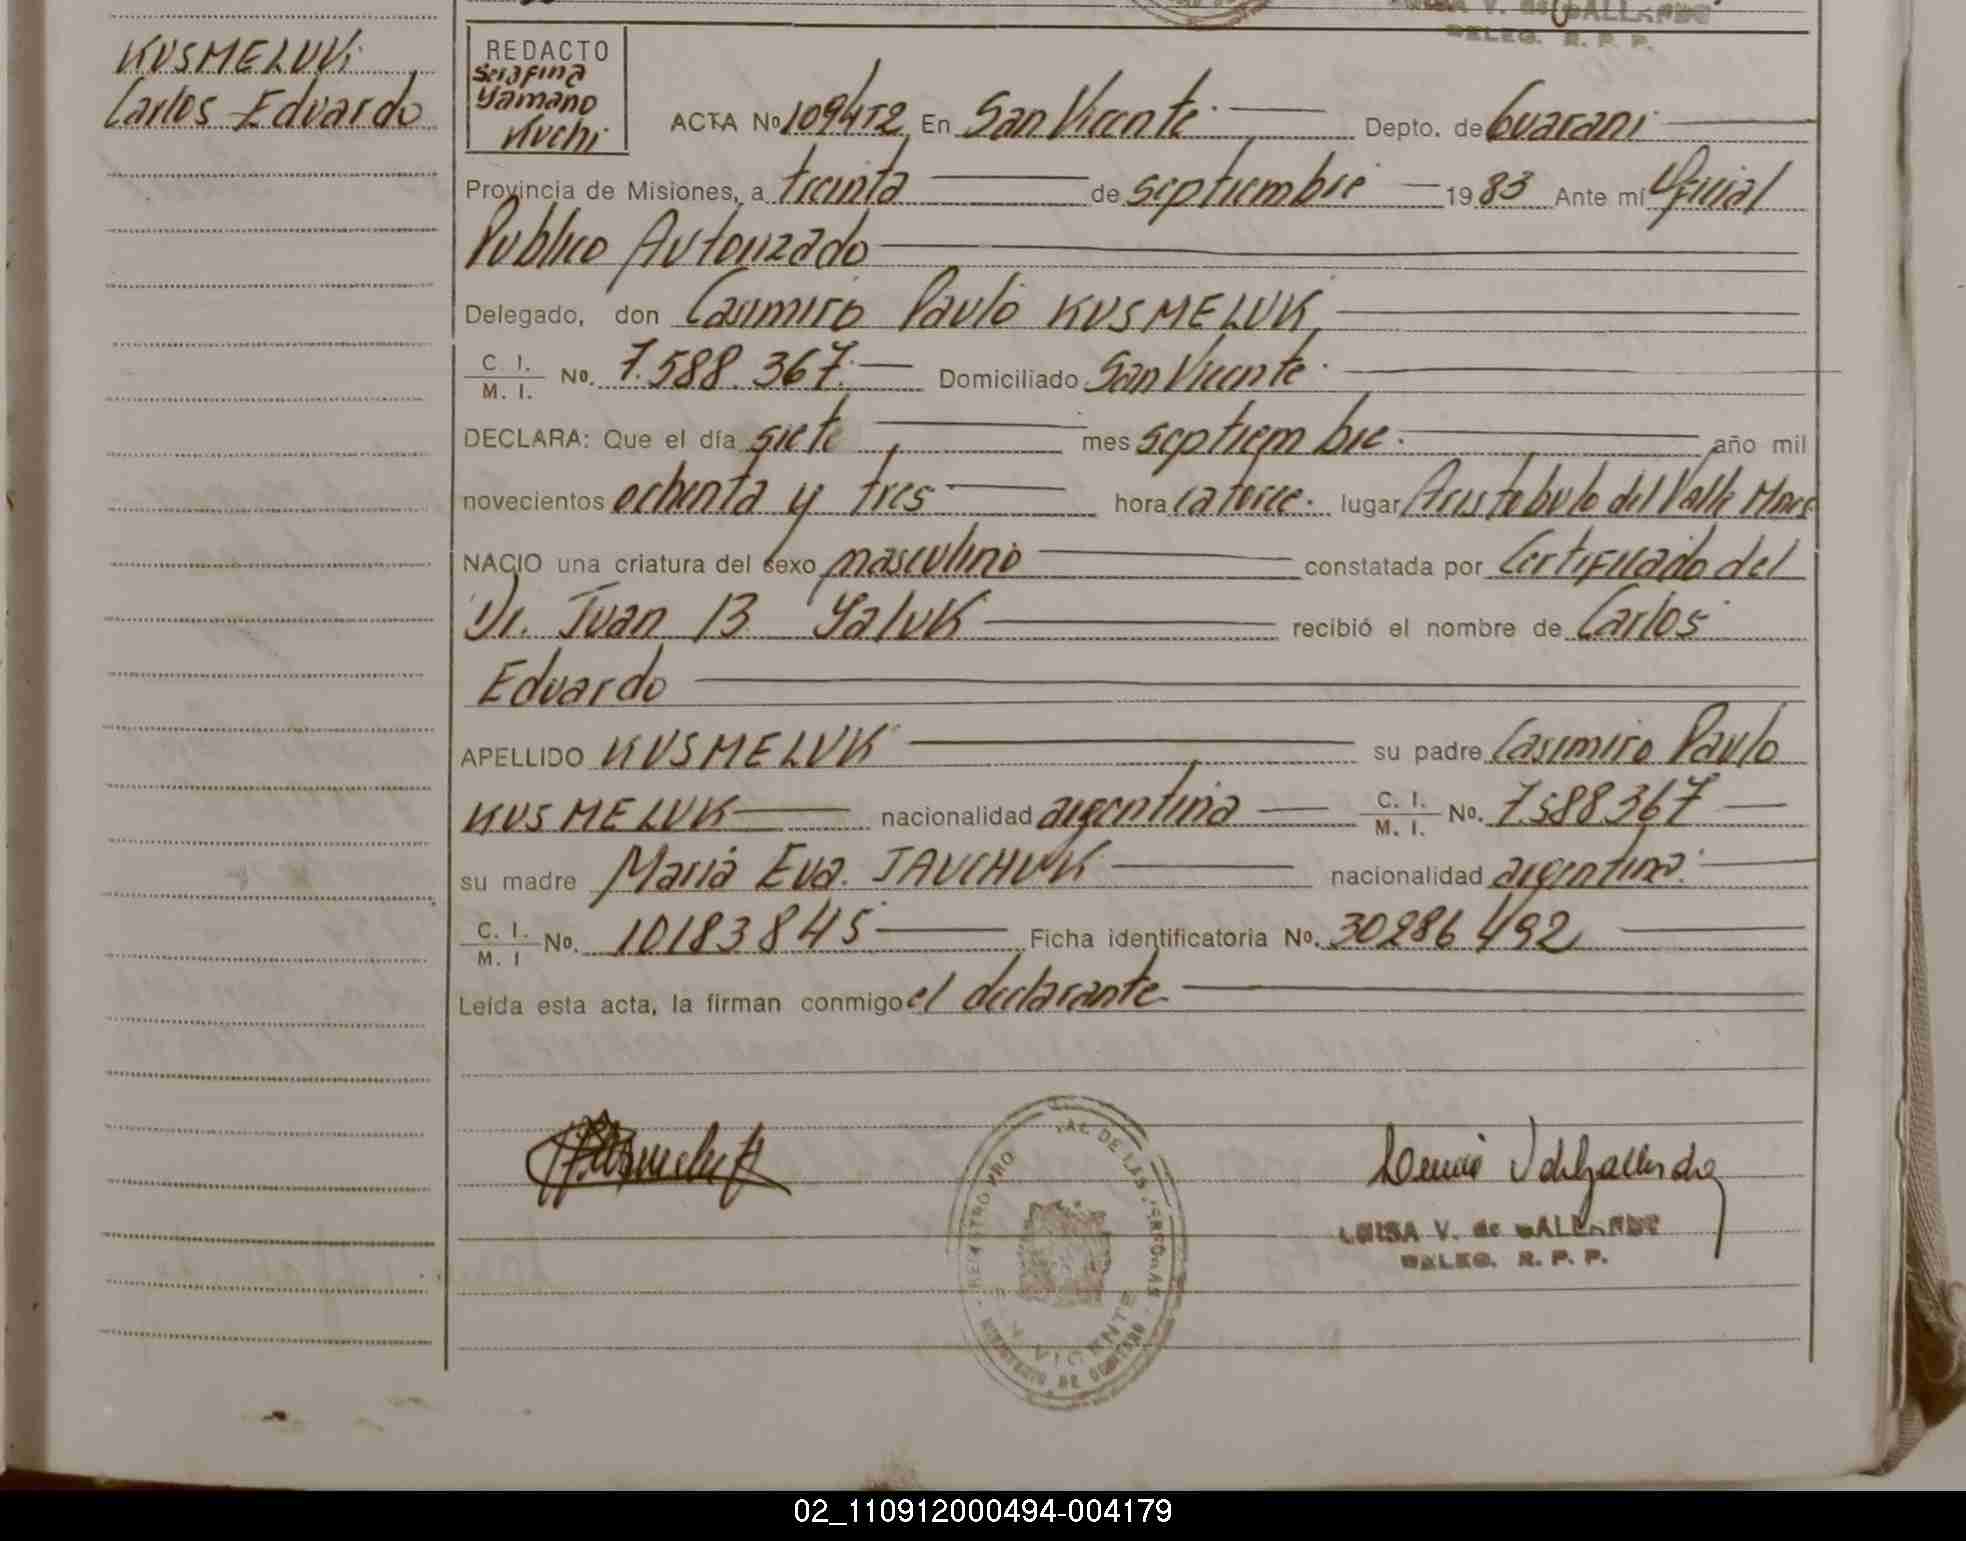 LUISA V. de GALLARDO
DELEG. R. P. P.
KUSMELUK
Carlos Eduardo
REDACTO
Serafina
Yamano
Kuchi
ACTA No 1094T2 En San Vicente Depto. de Guarani
Provincia de Misiones, a treinta de septiembre 1983 Ante mí Oficial
Publico Autorizado
Delegado, don Casimiro Paulo KUSMELUK,
C. I. / M. I. No. 7.588.367. Domiciliado San Vicente.
DECLARA: Que el día siete mes septiembre. año mil
novecientos ochenta y tres hora catorce. lugar Aristobulo del Valle Mnes
NACIO una criatura del sexo masculino constatada por Certificado del
Dr. Juan B Yaluk recibió el nombre de Carlos
Eduardo
APELLIDO KUSMELUK su padre Casimiro Paulo
KUSMELUK nacionalidad argentina C. I. / M. I. No. 7588367
su madre Maria Eva. JAUCHUK nacionalidad argentina.
C. I. / M. I No. 10183845 Ficha identificatoria No. 30286492
Leída esta acta, la firman conmigo el declarante
REGISTRO PRO AL DE LAS PERSONAS
VICENTE
MINISTERIO DE GOBIERNO
LUISA V. de GALLARDO
DELEG. R. P. P.
02_110912000494-004179